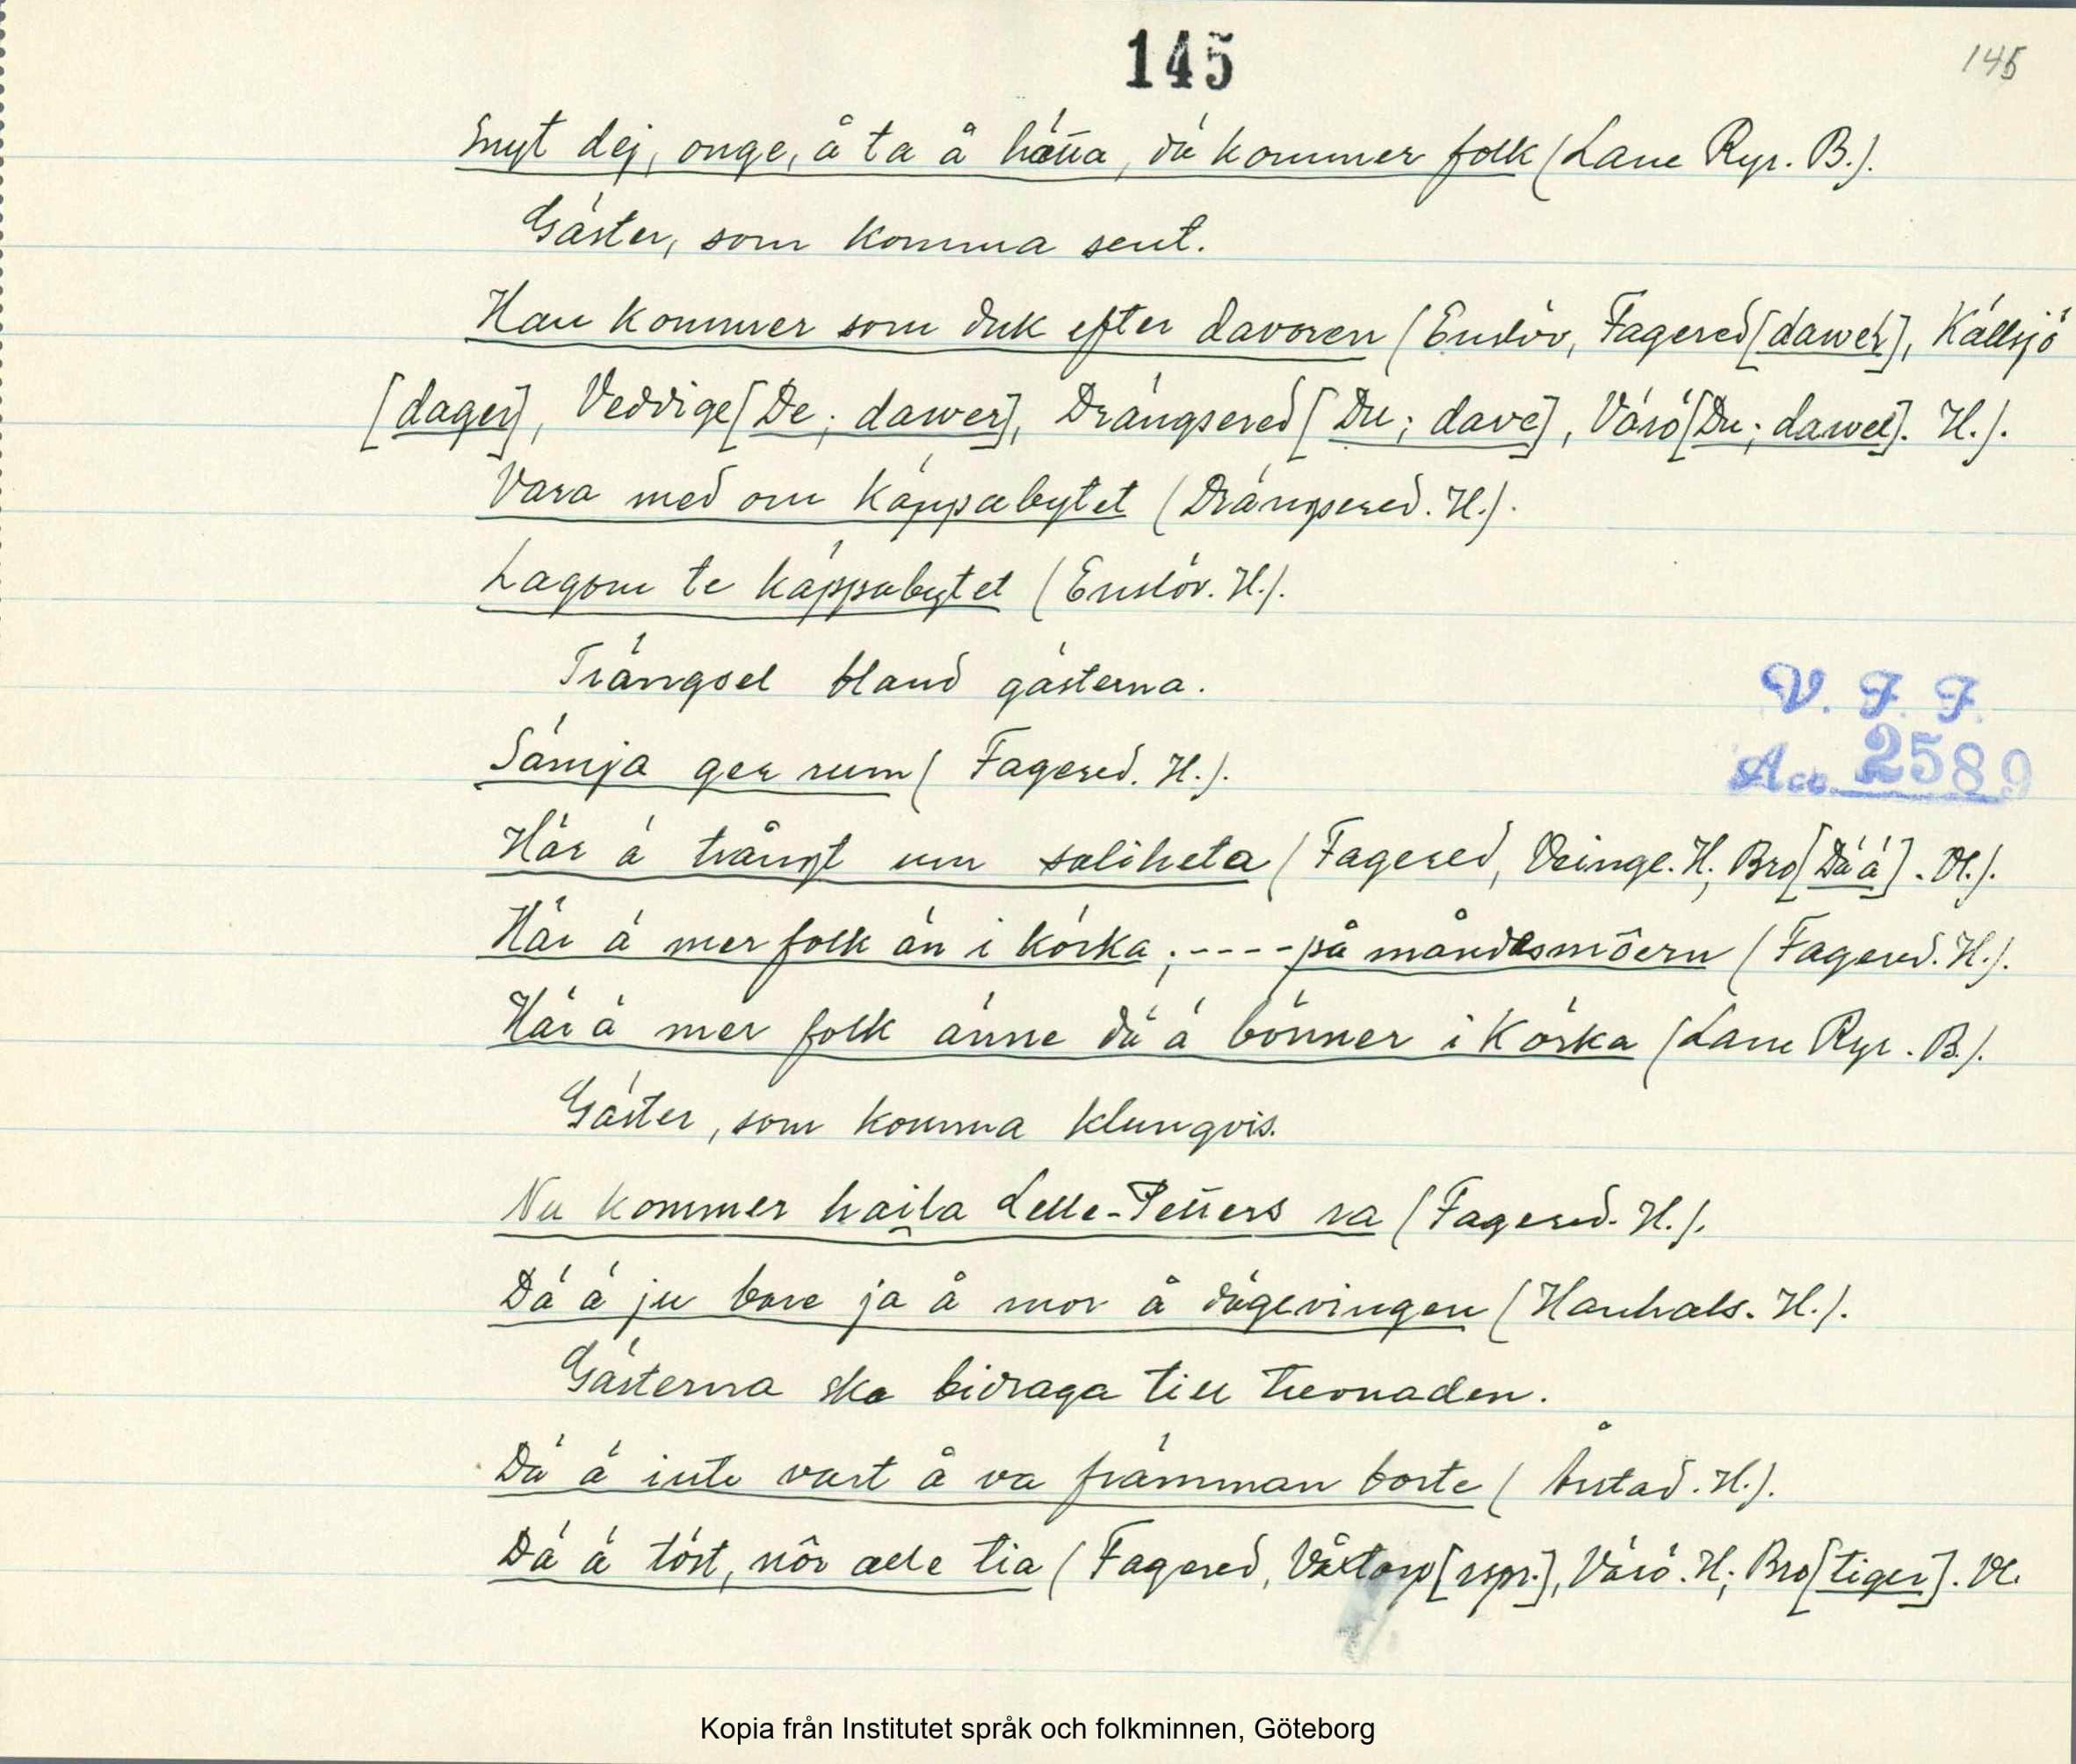 145
145
Snyt dej, onge, å ta å hätta, dä kommer folk (Lane Ryr. B.).
Gäster, som komma sent.
Han kommer som duk efter davoren (Enslöv, Fagered [dawer], Källsjö
[dager], Veddige [De; dawer], Drängsered [Du; dave], Värö [Du; dawel]. H.).
Vara med om käppabytet (Drängsered. H.).
Lagom te käppabytet (Enslöv. H.).
Trängsel bland gästerna.
V. F. F.
Acc. 2589
Sämja ger rum (Fagered. H.).
Här ä trångt um saliheta (Fagered, Veinge. H.; Bro [Dä ä]. Vl.).
Här ä mer folk än i körka; ---- på måndasmôern (Fagered. H.).
Här ä mer folk änne dä ä bönner i Körka (Lane Ryr. B.).
Gäster, som komma klungvis.
Nu kommer haila Lelle-Petters ra (Fagered. H.).
Dä ä ju bare ja å mor å dägevingen (Hanhals. H.).
Gästerna ska bidraga till trevnaden.
Dä ä inte vart å va främman borte (Årstad. H.).
Dä ä töst, nôr alle tia (Fagered, Växtorp [rspr.], Värö. H.; Bro [tiger]. Vl.
Kopia från Institutet språk och folkminnen, Göteborg